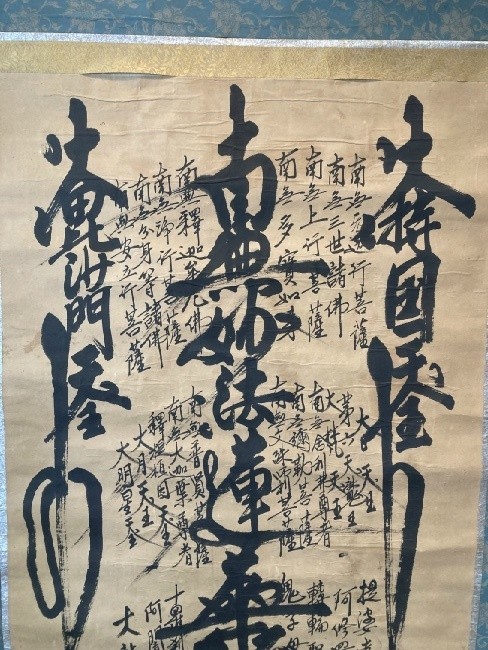 大持國天王
南無無邊行菩薩
南無三世諸佛
南無上行菩薩
南無多寶如来
南無妙法蓮華
南無釋迦牟尼佛
南無淨行菩薩
南無分身等諸佛
南無安立行菩薩
大毘沙門天王
大日天王
第六天魔王
大梵天王
南無舍利弗尊者
南無弥勒菩薩
南無文殊師利菩薩
南無普賢菩薩
南無大迦葉尊者
釋提桓因天王
大月天王
大明星天王
提婆
阿修羅
轉輪
鬼子母
十羅刹
阿闍
大龍